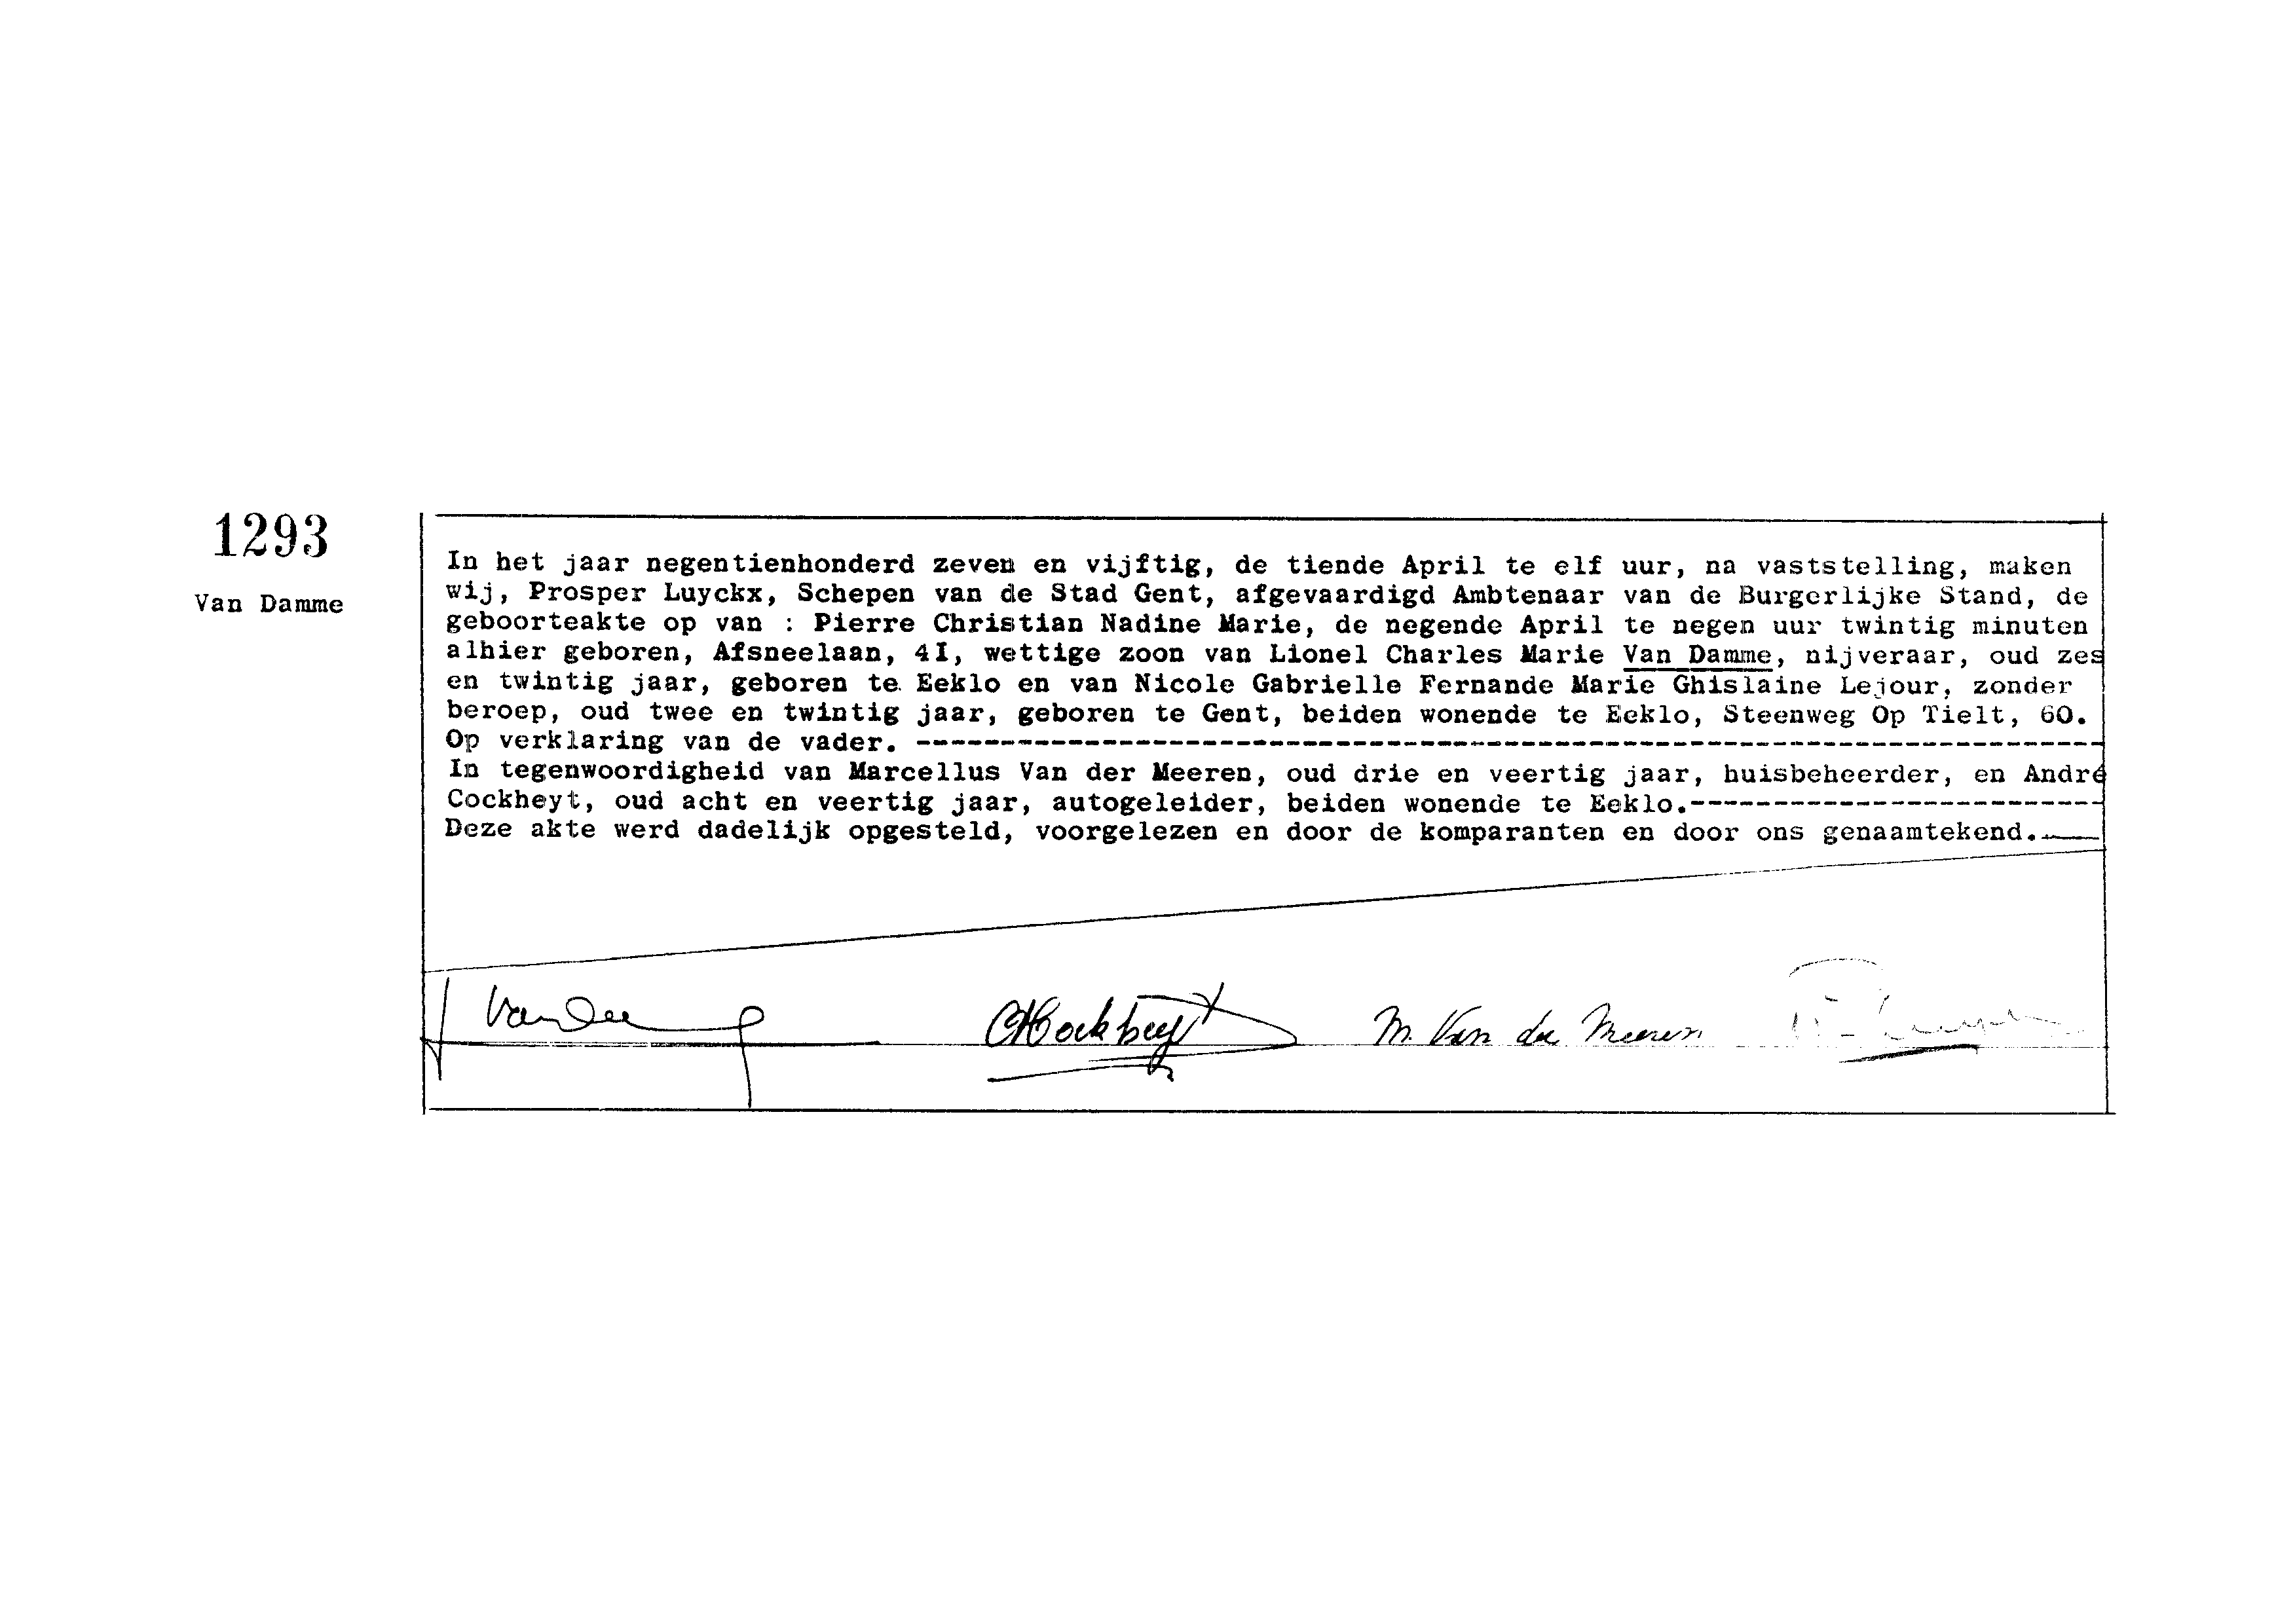 1293
Van Damme
In het jaar negentienhonderd zeven en vijftig, de tiende April te elf uur, na vaststelling, maken
wij, Prosper Luyckx, Schepen van de Stad Gent, afgevaardigd Ambtenaar van de Burgerlijke Stand, de
geboorteakte op van : Pierre Christian Nadine Marie, de negende April te negen uur twintig minuten
alhier geboren, Afsneelaan, 4I, wettige zoon van Lionel Charles Marie Van Damme, nijveraar, oud zes
en twintig jaar, geboren te Eeklo en van Nicole Gabrielle Fernande Marie Ghislaine Lejour, zonder
beroep, oud twee en twintig jaar, geboren te Gent, beiden wonende te Eeklo, Steenweg Op Tielt, 60.
Op verklaring van de vader. ----------------------------------------------------------------------
In tegenwoordigheid van Marcellus Van der Meeren, oud drie en veertig jaar, huisbeheerder, en André
Cockheyt, oud acht en veertig jaar, autogeleider, beiden wonende te Eeklo.-------------------------
Deze akte werd dadelijk opgesteld, voorgelezen en door de komparanten en door ons genaamtekend.
Cockheyt M. Van der Meeren